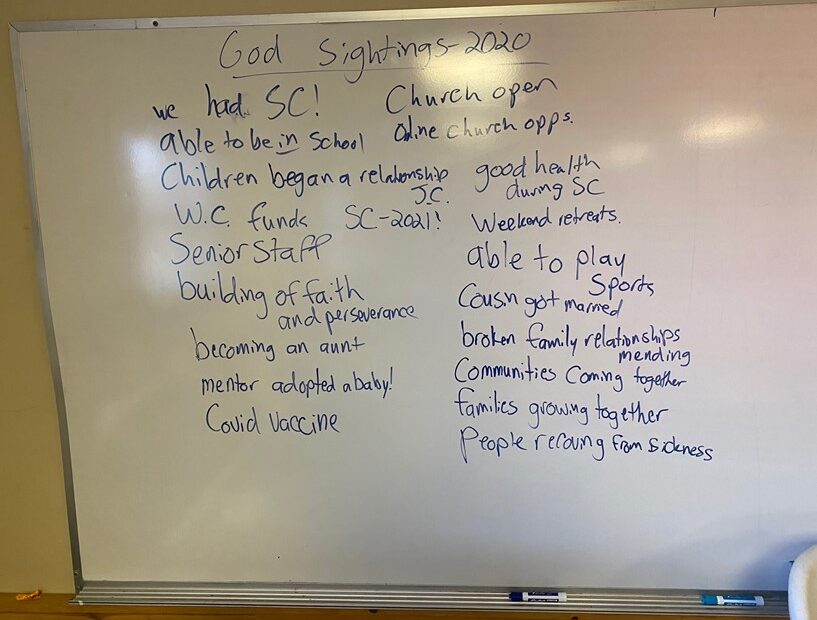 God Sightings-2020
we had SC!
able to be in School
Children began a relationship
J.C.
W.C. funds SC-2021!
Senior Staff
building of faith
and perseverance
becoming an aunt
mentor adopted a baby!
Covid Vaccine
Church open
Online church opps.
good health
during SC
Weekend retreats.
able to play
Sports
Cousin got married
broken family relationships
mending
Communities Coming together
families growing together
People recoving from sickness